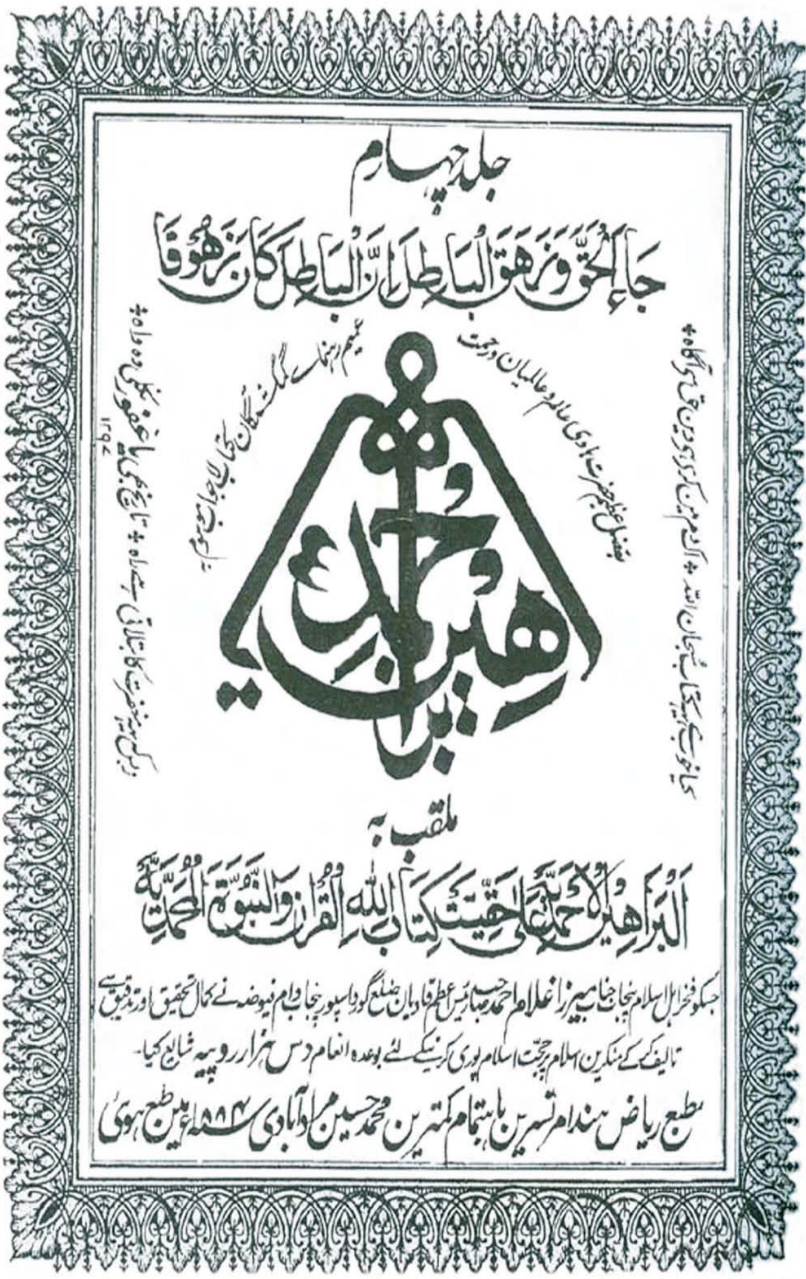 جلد چہارم
جَآءَ الْحَقُّ وَزَهَقَ الْبَاطِلُ اِنَّ الْبَاطِلَ كَانَ زَهُوْقًا
بفضل عظیم حضرت ہادی عالم و عالمیان و رحمت عمیم رہنمائے گمگشتگان کتاب لاجواب
کیا خوب ہے یہ کتاب سبحان اللہ * اک دم میں کرے ہے دین حق سے آگاہ *
از بس کہ یہ مغفرت کا بتلاتی ہے راہ * تاریخ بھی یا غفور نکلی وہ واہ *
۱۲۹۷
براہین احمدیہ
ملقب بہ
اَلْبَرَاهِيْنُ الْاَحْمَدِيَّةُ عَلٰى حَقِّيَّتِ كِتَابِ اللّٰهِ الْقُرْاٰنِ وَالنُّبُوَّةِ الْمُحَمَّدِيَّةِ
جسکو فخر اہل اسلام پنجاب جناب میرزا غلام احمد صاحب رئیس اعظم قادیان ضلع گورداسپور پنجاب دام فیوضہ نے کمال تحقیق اور تدقیق سے
تالیف کر کے منکرین اسلام پر حجت اسلام پوری کرنیکے لئے بوعدہ انعام دس ہزار روپیہ شایع کیا۔
مطبع ریاض ہند امرتسر میں باہتمام کمترین محمد حسین مرادآبادی ۱۸۸۴ء میں طبع ہوئی